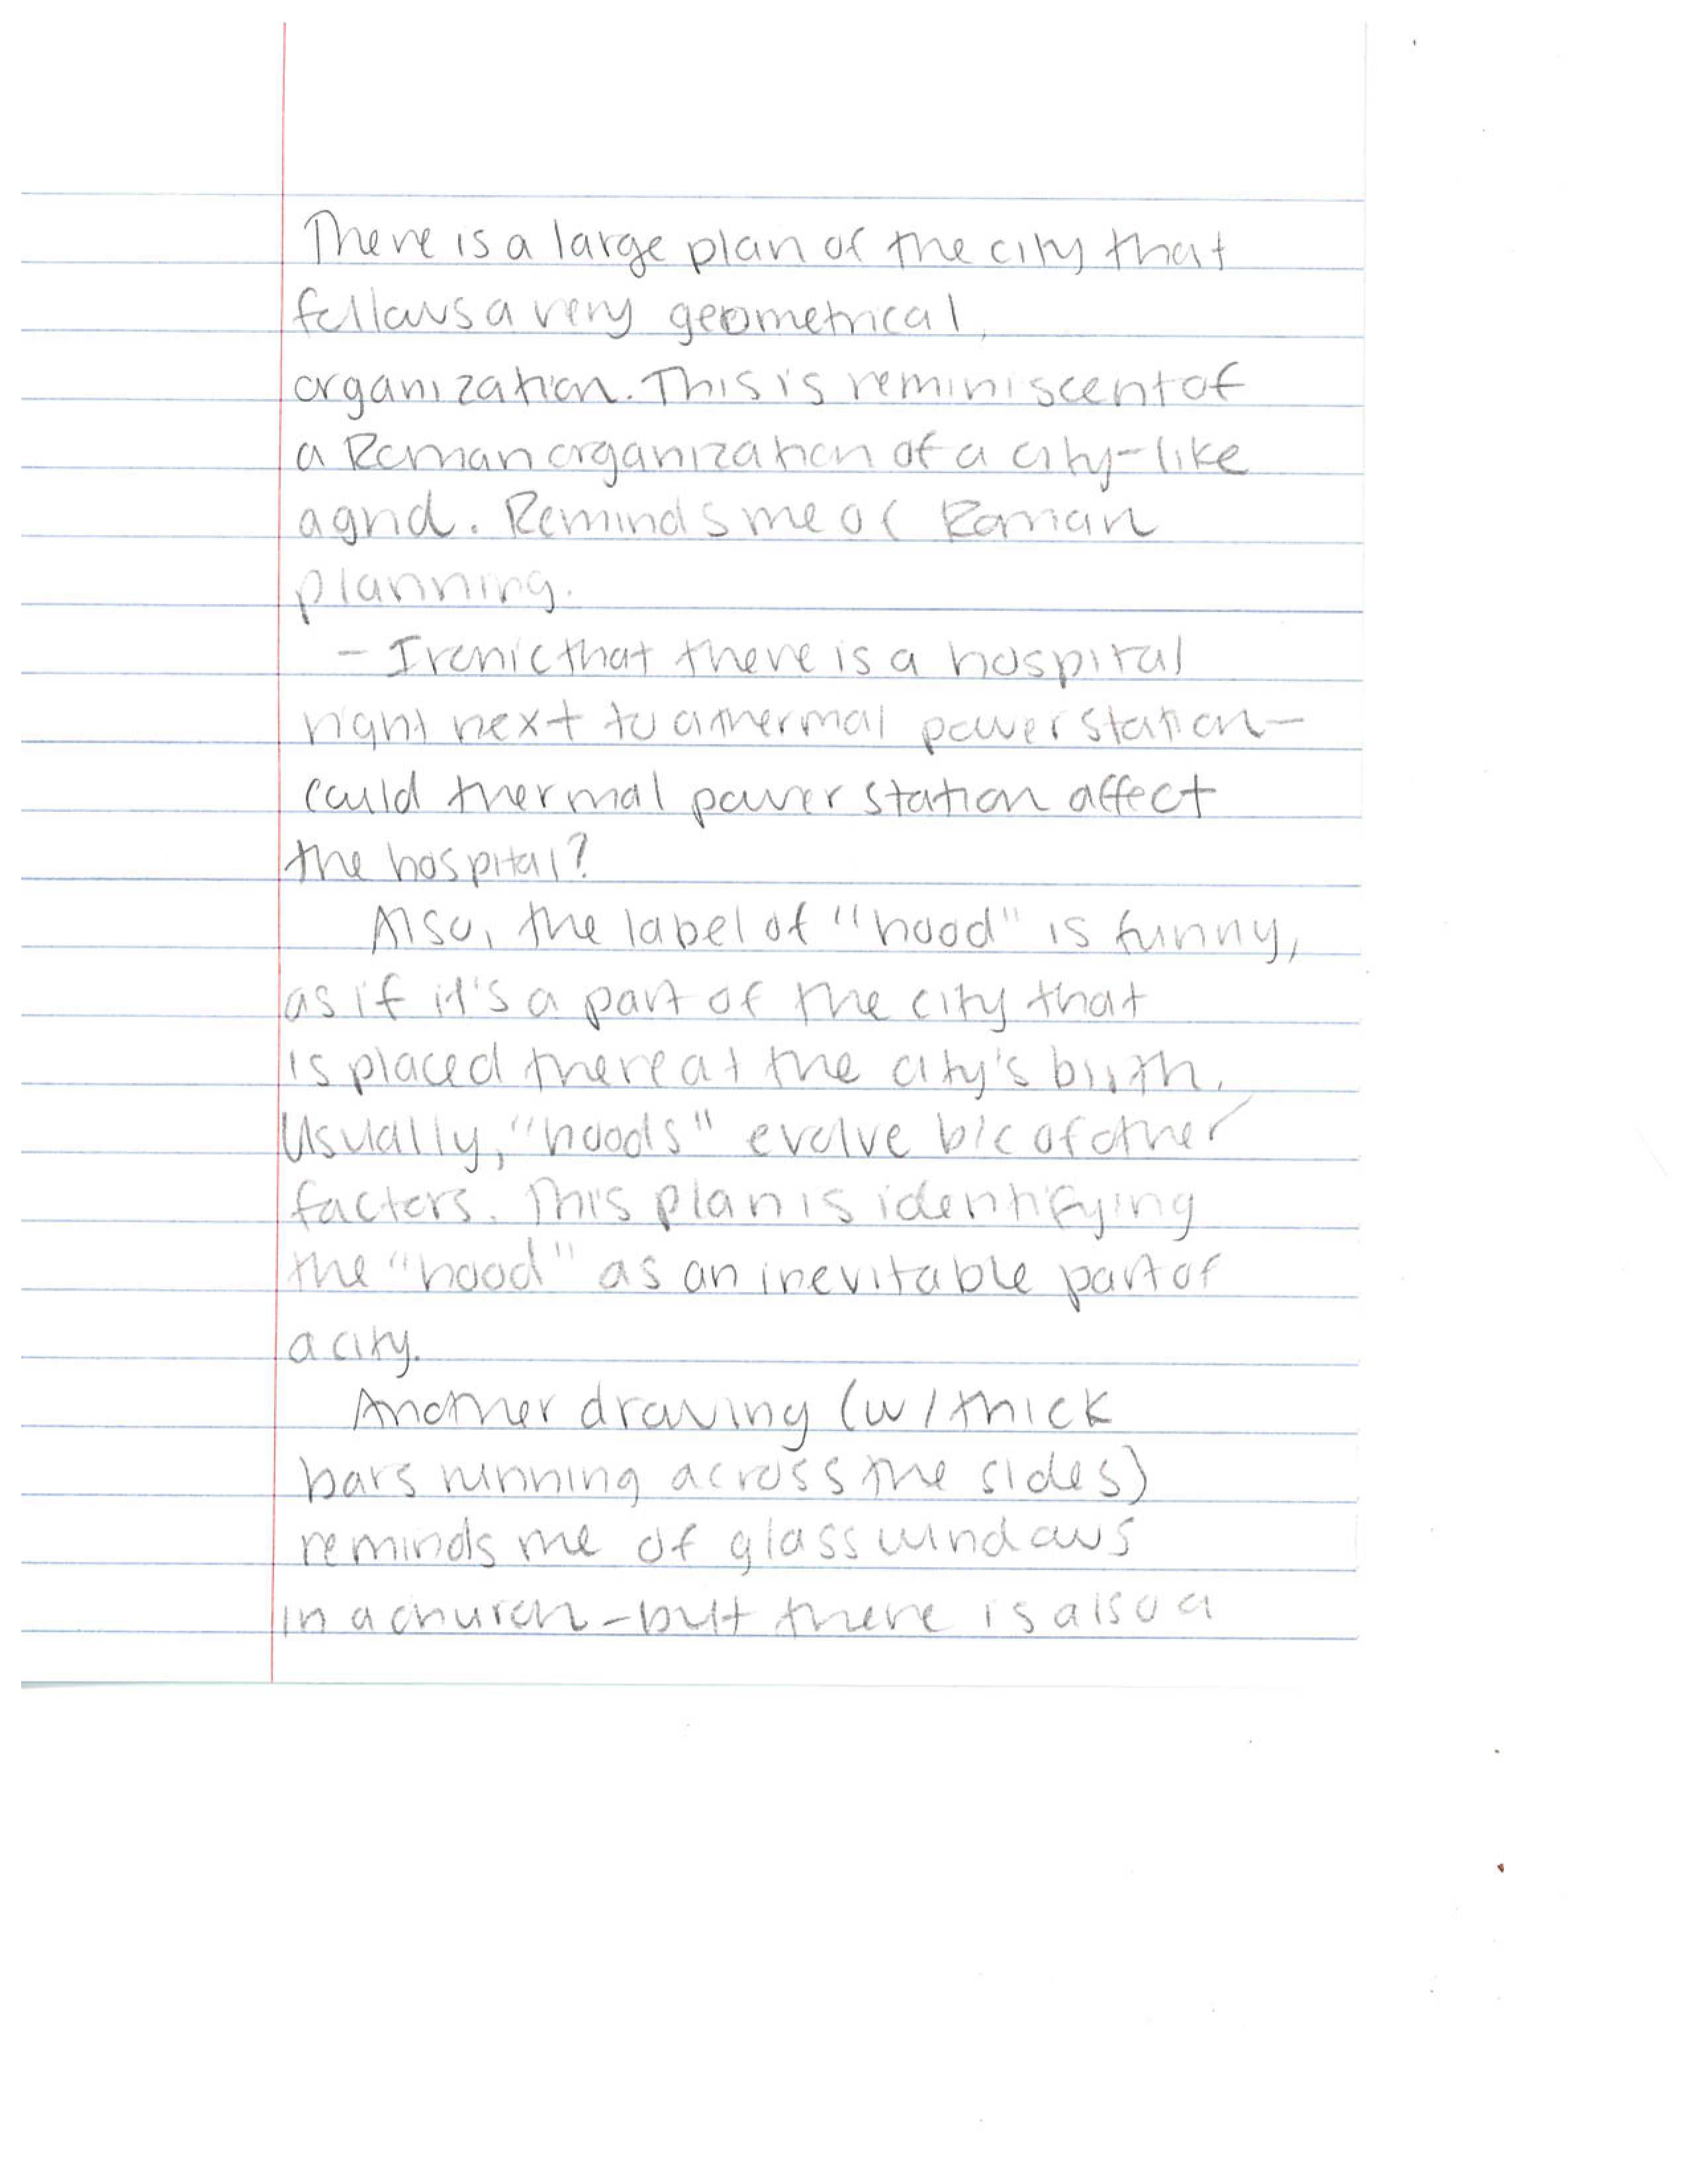 There is a large plan of the city that
follows a very geometrical
organization. This is reminiscent of
a Roman organization of a city-like
a grid. Reminds me of Roman
planning.
- Ironic that there is a hospital
right next to a thermal power station-
could thermal power station affect
the hospital?
Also, the label of "hood" is funny,
as if it's a part of the city that
is placed there at the city's birth.
Usually, "hoods" evolve b/c of other
factors. This plan is identifying
the "hood" as an inevitable part of
a city.
Another drawing (w/ thick
bars running across the sides)
reminds me of glass windows
in a church - but there is also a